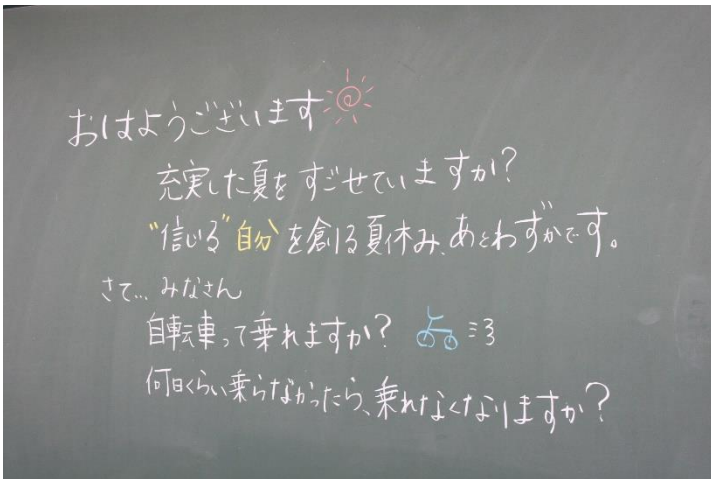 おはようございます
充実した夏をすごせていますか?
"信じる"自分を創る夏休み、あとわずかです。
さて... みなさん
自転車って乗れますか?
何日くらい乗らなかったら、乗れなくなりますか?